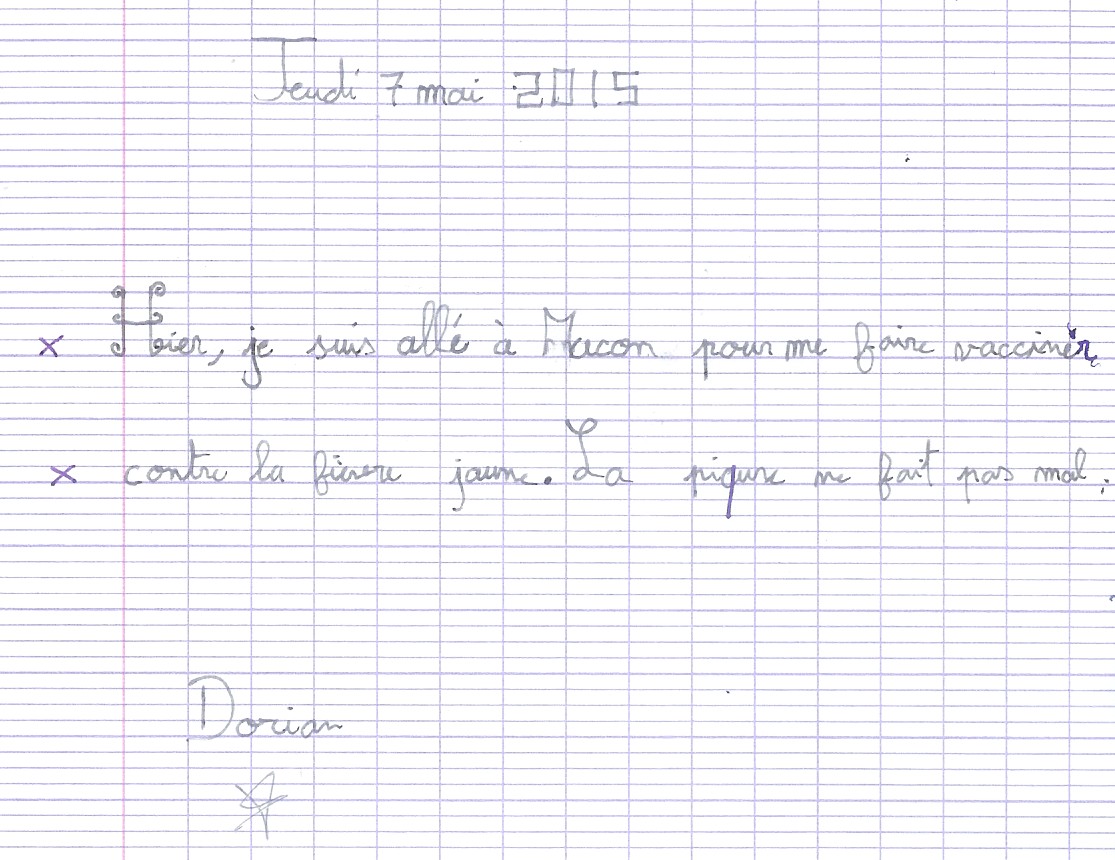 Jeudi 7 mai 2015
Hier, je suis allé à Macon pour me faire vacciner
contre la fièvre jaune. La piqure ne fait pas mal.
Dorian